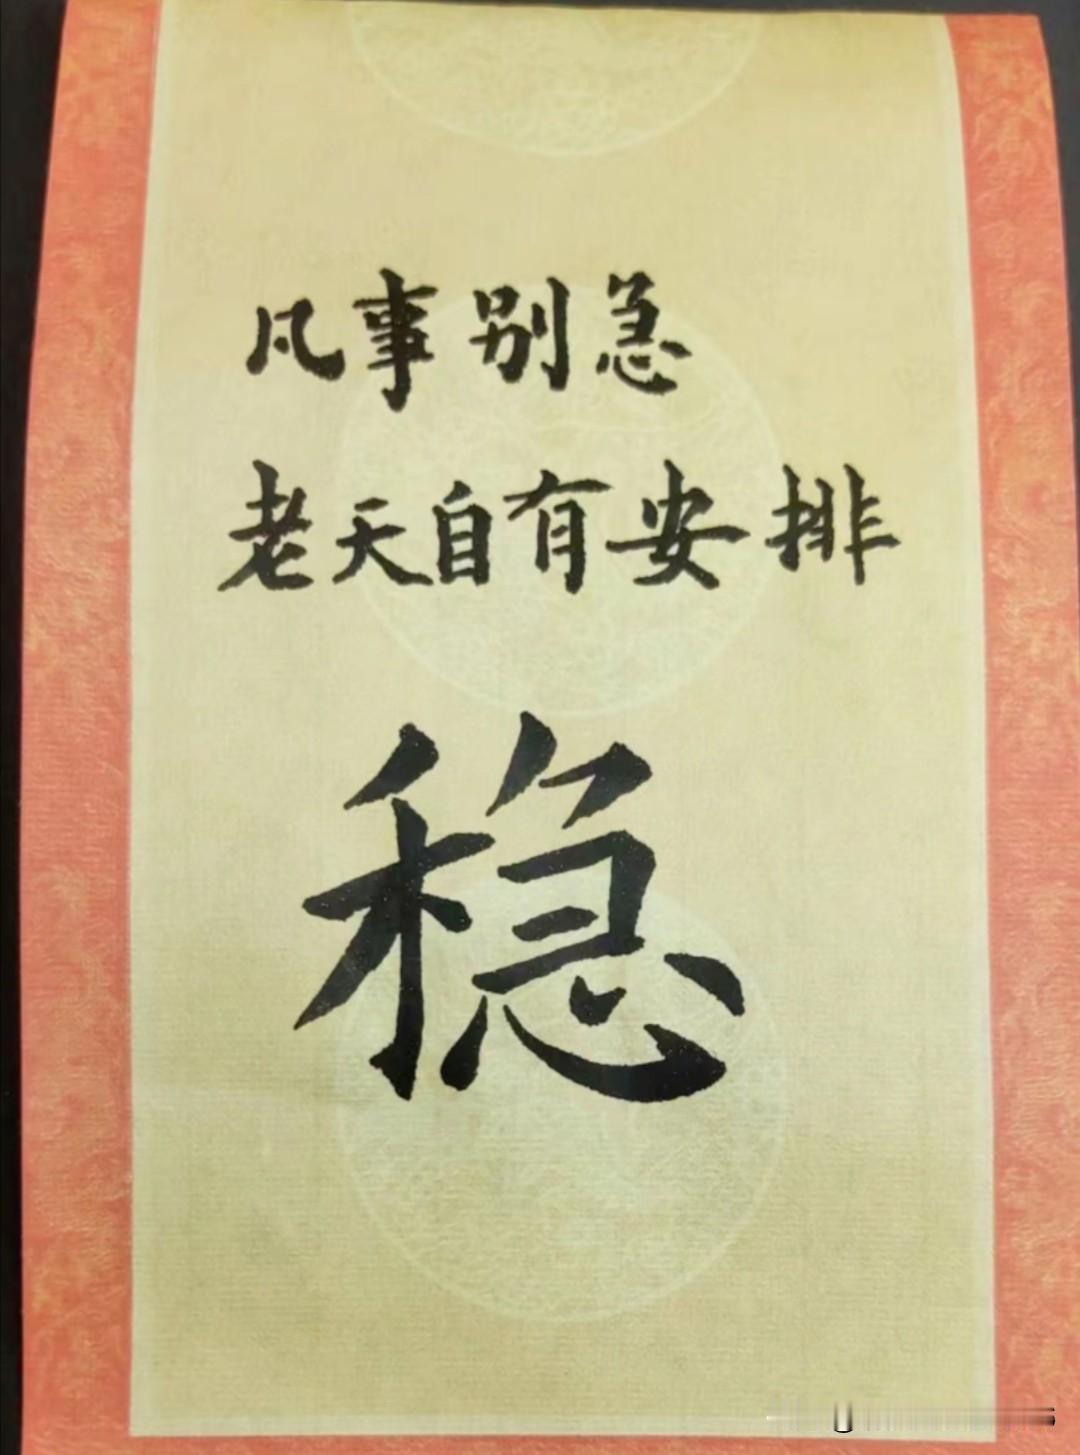 凡事别急
老天自有安排
稳